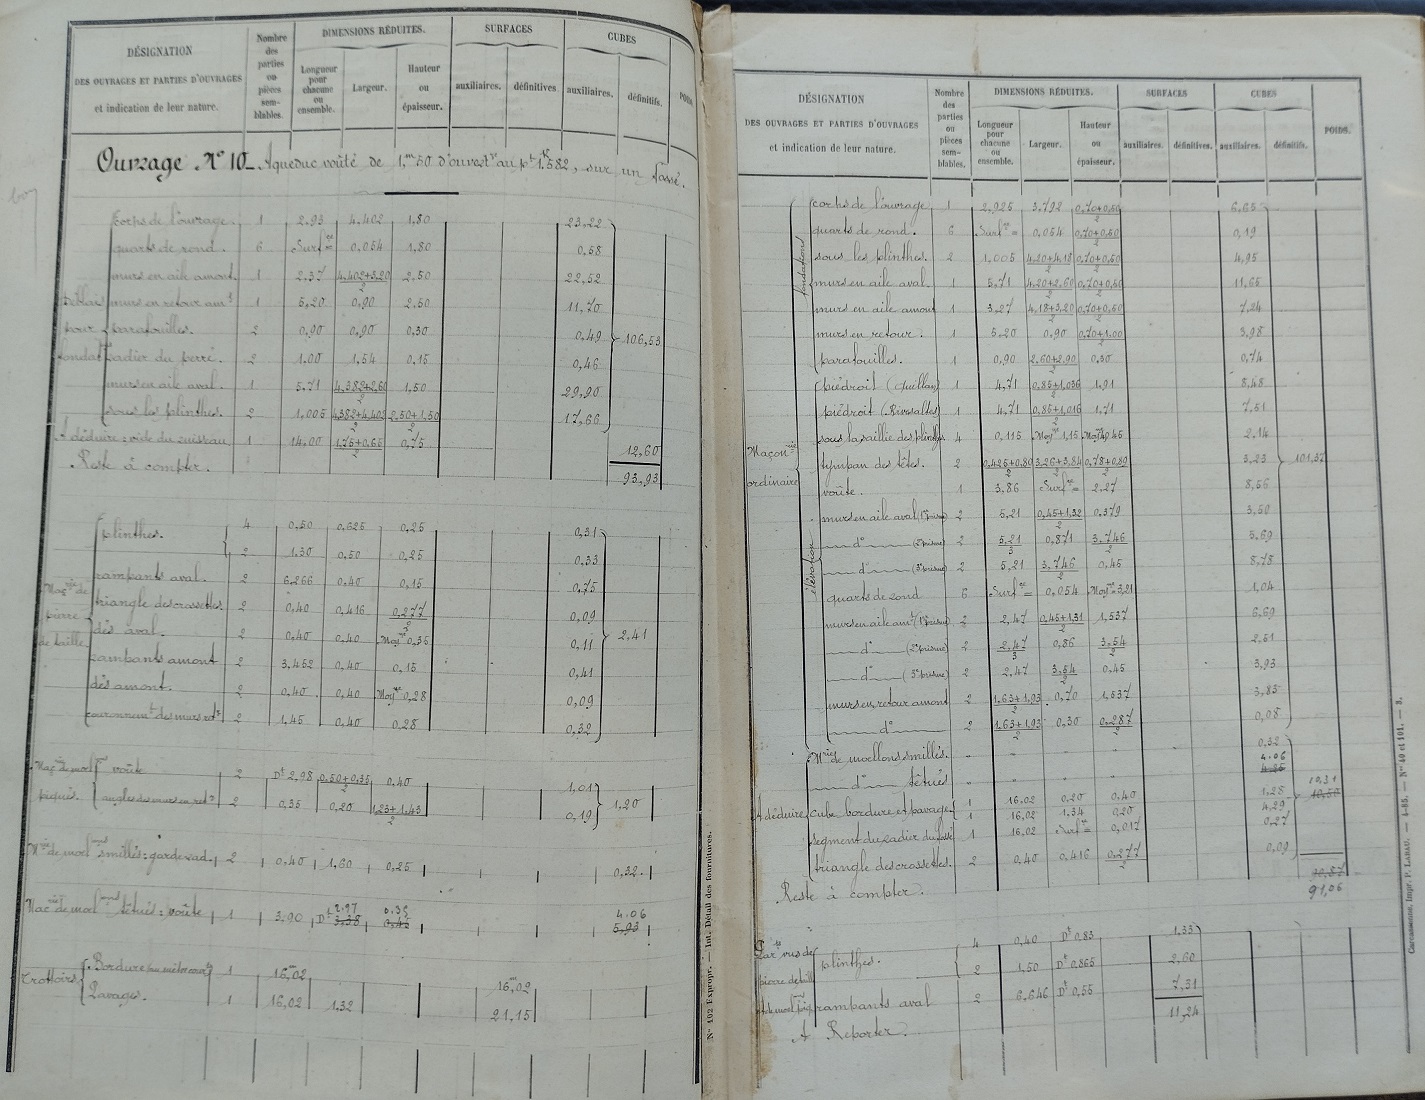 DÉSIGNATION
DES OUVRAGES ET PARTIES D'OUVRAGES
et indication de leur nature.
Nombre des parties ou pièces sem-blables.
DIMENSIONS RÉDUITES.
Longueur pour chacune ou ensemble.
Largeur.
Hauteur ou épaisseur.
SURFACES
auxiliaires.
définitives.
CUBES
auxiliaires.
définitifs.
Ouvrage N° 10 _ Aqueduc voûté de 1,m50 d'ouvertre au pt 1.582, sur un fossé.
Déblais pour fondatns
corps de l'ouvrage. 1 2.93 4.402 1,80 23,22
quarts de rond. 6 Surfce = 0,054 1,80 0,58
murs en aile amont. 1 2.37 4.402+3.20/2 2,50 22,52
murs en retour amt 1 5,20 0,90 2,50 11,70
parafouilles. 2 0,90 0,90 0,30 0,49 106,53
radier du perré. 2 1.00 1,54 0,15 0,46
murs en aile aval. 1 5,71 4,382+2,60/2 1,50 29,90
sous les plinthes. 2 1,005 4,382+4,402/2 2,50+1,50/2 17,66
A déduire: vide du ruisseau 1 14,00 1,75+0,65/2 0,75 12,60
Reste à compter. 93,93
Maçrie de pierre de taille
plinthes. 4 0,50 0,625 0,25 0,31
2 1.30 0,50 0,25 0.33
rampants aval. 2 6.266 0,40 0,15 0,75
triangle des crossettes 2 0,40 0,416 0,277/2 0,09
dés aval. 2 0,40 0,40 Moyne 0,35 0,11 2,41
rampants amont 2 3,452 0,40 0,15 0,41
dés amont. 2 0,40 0,40 Moyne 0,28 0,09
couronnemt des murs ret 2 1,45 0,40 0,28 0,32
Maçrie de moelns piqués.
voûte 2 Dt 2,98 0,50+0,35/2 0,40 1,01
angles des murs en ret 2 0,35 0,20 1,23+1,43/2 0,19 1,20
Mrie de moelons smillés: garde rad. 2 0,40 1,60 0,25 0,32
Macrie de moelons têtués: voûte 1 3.90 Dt 2.97 3,38 0.35 0,45 4.06 5,93
Trottoirs
Bordure (au mètre cour) 1 16,m02 16,m02
Pavages. 1 16,02 1,32 21,15
N° 102 Expropr. — Int. Détail des fournitures.
DÉSIGNATION
DES OUVRAGES ET PARTIES D'OUVRAGES
et indication de leur nature.
Nombre des parties ou pièces sem-blables.
DIMENSIONS RÉDUITES.
Longueur pour chacune ou ensemble.
Largeur.
Hauteur ou épaisseur.
SURFACES
auxiliaires.
définitives.
CUBES
auxiliaires.
définitifs.
POIDS.
Maçonrie ordinaire
fondations
corps de l'ouvrage 1 2,925 3,792 0,70+0,50/2 6,65
quarts de rond. 6 Surfce = 0,054 0,70+0,50/2 0,19
sous les plinthes. 2 1,005 4,20+4,18/2 0,70+0,50/2 4,95
murs en aile aval. 1 5,71 4,20+2,60/2 0,70+0,50/2 11,65
murs en aile amont 1 3,27 4,18+3,20/2 0,70+0,50/2 7,24
murs en retour. 1 5.20 0,90 0,70+1.00/2 3,98
parafouilles. 1 0,90 2,60+2,90/2 0,30 0,74
élévation
piédroit (Quillan) 1 4,71 0,85+1,036/2 1,91 8,48
piédroit (Rivesaltes) 1 4,71 0,85+1,016/2 1,71 7,51
sous la saillie des plinthes 4 0,115 Moyne 1,15 Moyne 4,45 2,14
tympan des têtes. 2 0,426+0,80/2 3,26+3,84/2 0,78+0,89/2 3,23 101,37
voûte. 1 3,86 Surfce = 2,27 8,56
murs en aile aval (1er prisme) 2 5,21 0,45+1,32/2 0,379 3,50
d° (2e prisme) 2 5,21/3 0,871 3,746/2 5,69
d° (3e prisme) 2 5,21 3,746/2 0,45 8,78
quarts de rond 6 Surfce = 0,054 Moyne = 3,21 1,04
murs en aile amt (1er prisme) 2 2,47 0,45+1,31/2 1,537 6,69
d° (2e prisme) 2 2,47/3 0,86 3,54/2 2,51
d° (3e prisme) 2 2,47 3,54/2 0,45 3,93
murs en retour amont 2 1,63+1,93/2 0,70 1,537 3,83
d° 2 1,63+1,93/2 0,30 0,287/2 0,08
A déduire
Mrie de moellons smillés. " " " " 0,32
d° têtués " " " " 4.06 4,25
cube bordure et pavage 1 16,02 0,20 0,40 1,28 10,31 10,50
1 16,02 1,34 0,20 4,29
segment du radier du fossé 1 16,02 Surfce = 0,017 0,27
triangle des crossettes. 2 0,40 0,416 0,277/2 0,09
Reste à compter. 90,87
91,06
plinthes. 4 0,40 Dt 0,83 1,33
2 1,50 Dt 0,865 2,60
rampants aval 2 6,646 Dt 0,55 7,31
A Reporter. 11,24
Carcassonne, Impr. P. LABAU. — 4-85. — Nos 40 et 101. — 3.